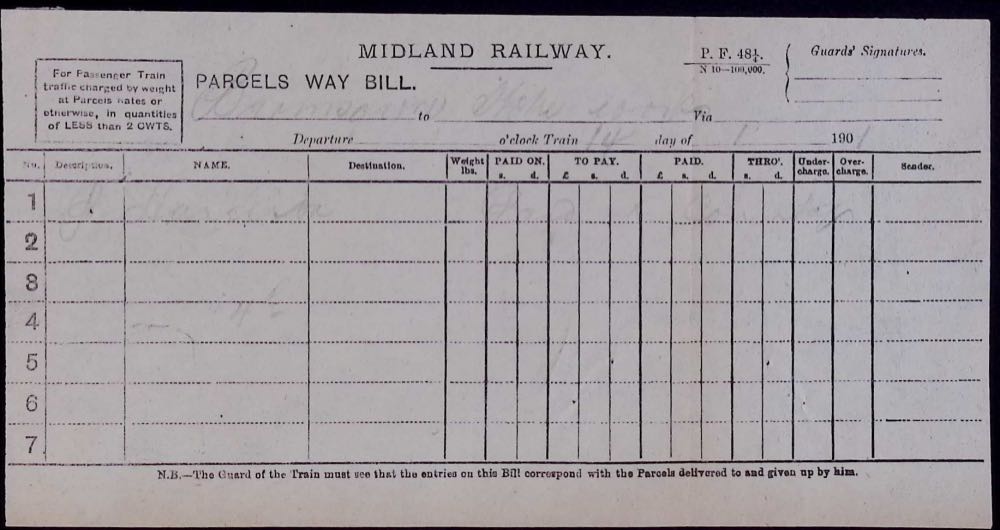 MIDLAND RAILWAY.
P. F. 48¼.
N 10—100,000.
Guards' Signatures.
For Passenger Train
traffic charged by weight
at Parcels Rates or
otherwise, in quantities
of LESS than 2 CWTS.
PARCELS WAY BILL.
to Via
Departure o'clock Train 14 day of 1 1901
No. Description. NAME. Destination. Weight lbs. PAID ON. s. d. TO PAY. £ s. d. PAID. £ s. d. THRO'. s. d. Under-charge. Over-charge. Sender.
1
2
3
4
5
6
7
N.B.—The Guard of the Train must see that the entries on this Bill correspond with the Parcels delivered to and given up by him.